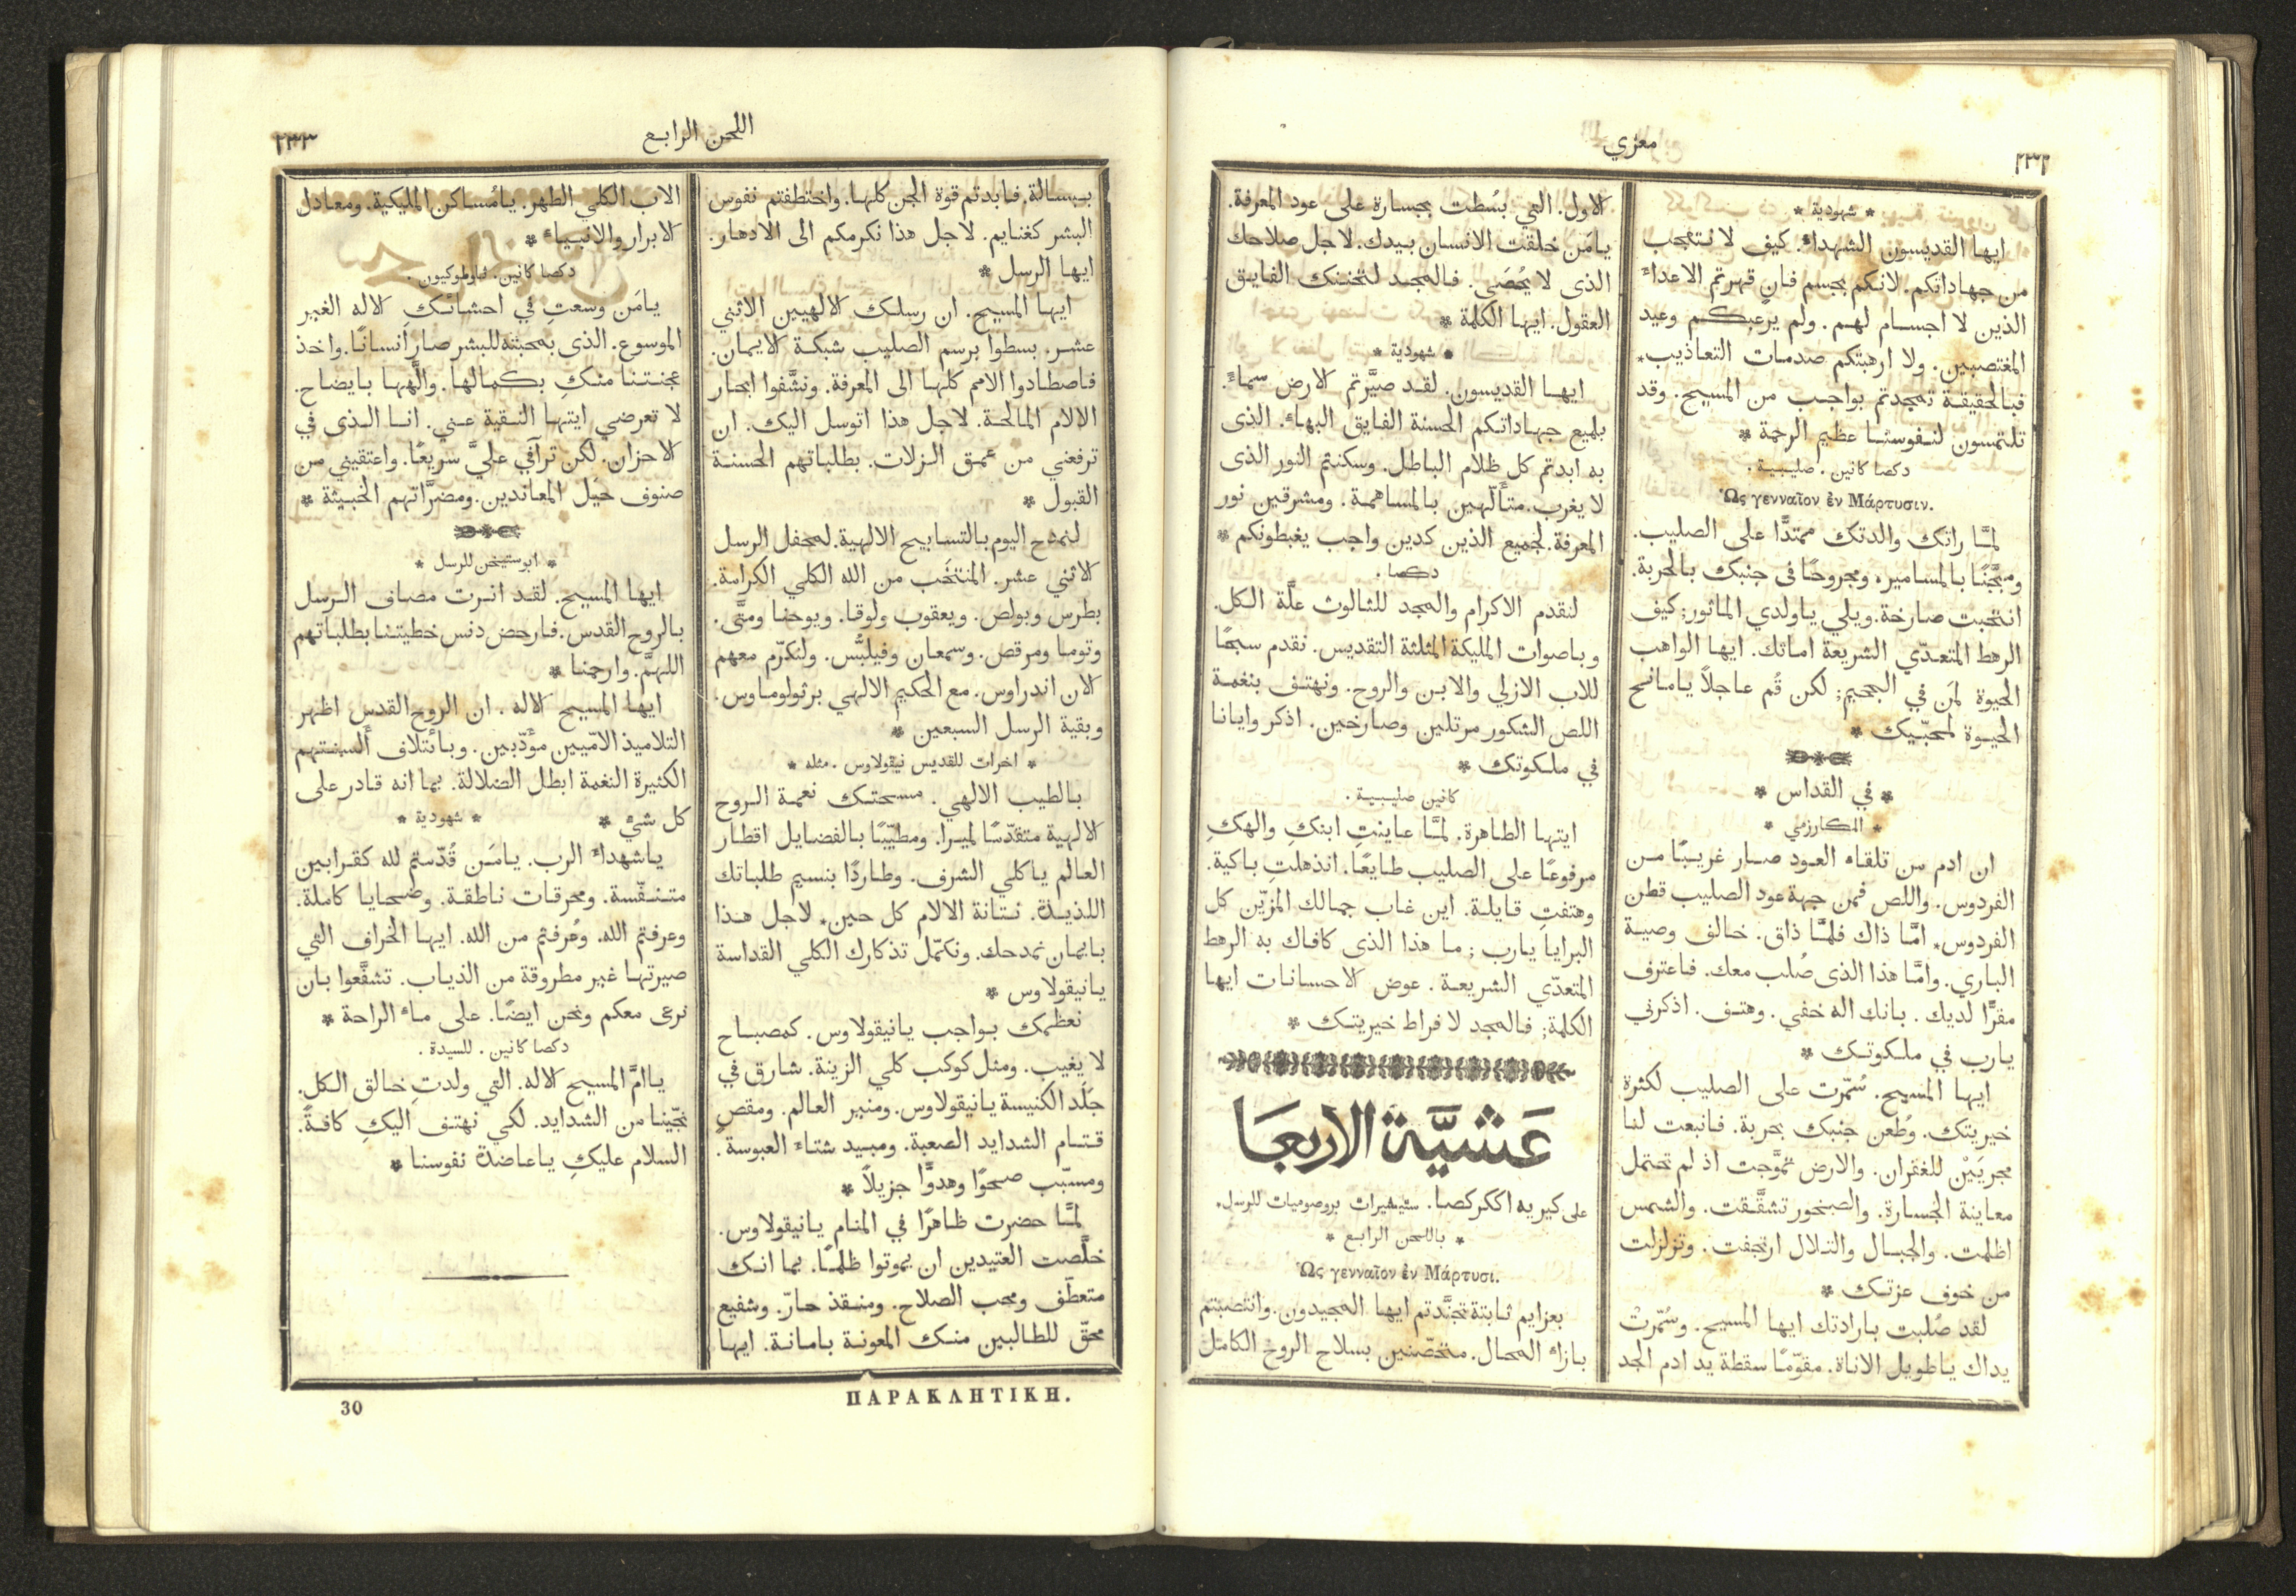 معزي
٢٣٢
* شهودية *
ايها القديسون الشهداء. كيف لا نتعجب
من جهاداتكم. لانكم بجسم فانٍ قهرتم الاعداء
الذين لا اجسام لهم. ولم يرعبكم وعيد
المغتصبين. ولا ارهبتكم صدمات التعاذيب*
فبالحقيقة تمجدتم بواجب من المسيح. وقد
تلتمسون لنفوسنا عظيم الرحمة *
دكصا كانين. صليبية.
Ὡς γενναῖον ἐν Μάρτυσιν.
لمَّا راتك والدتك ممتدًّا على الصليب.
ومجَّنًا بالمسامير، ومجروحًا في جنبك بالحربة.
انتحبت صارخة. ويلي ياولدي الماثور; كيف
الرهط المتعدّي الشريعة اماتك. ايها الواهب
الحيوة لمَن في الجحيم; لكن قُم عاجلاً يامانح
الحيوة لمحبّيك *
* في القداس *
* المكارزمي *
ان ادم من تلقاء العود صار غريبًا من
الفردوس. واللص فمن جهة عود الصليب قطن
الفردوس* امَّا ذاك فلمَّا ذاق. خالف وصية
الباري. وامَّا هذا الذى صُلب معك. فاعترف
مقرًّا لديك. بانك اله خفي. وهتف. اذكرني
يارب في ملكوتك *
ايها المسيح. سُمّرت على الصليب لكثرة
خيريتك. وطُعن جنبك بحربة. فانبعت لنا
مجريَيْن للغفران. والارض تموَّجت اذ لم تحتمل
معاينة الجسارة. والصخور تشقَّقت. والشمس
اظلمت. والجبال والتلال ارتجفت. وتزلزلت
من خوف عزتك *
لقد صُلبت بارادتك ايها المسيح. وسُمّرتْ
يداك ياطويل الاناة. مقوّمًا سقطة يد ادم الجد
الاول. التي بسُطت بجسارة على عود المعرفة.
يامَن خلقت الانسان بيدك. لاجل صلاحك
الذى لا يُحصَى. فالمجد لتحننك الفايق
العقول. ايها الكلمة *
* شهودية *
ايها القديسون. لقد صيَّرتم الارض سماءً.
بلميع جهاداتكم الحسنة الفايق البهاء. الذى
به ابدتم كل ظلام الباطل. وسكنتم النور الذى
لا يغرب. متألّهين بالمساهمة. ومشرقين نور
المعرفة. لجميع الذين كدين واجب يغبطونكم *
دكصا.
لنقدم الاكرام والمجد للثالوث علَّة الكل.
وباصوات المليكة المثلثة التقديس. نقدم سبحًا
للاب الازلي والابن والروح. ونهتف بنغمة
اللص الشكور مرتلين وصارخين. اذكر وايانا
في ملكوتك *
كانين صليبية.
ايتها الطاهرة. لمَّا عاينتِ ابنكِ والهكِ
مرفوعًا على الصليب طايعًا. انذهلتِ باكية.
وهتفتِ قايلة. اين غاب جمالك المزيّن كل
البرايا يارب; ما هذا الذى كافاك به الرهط
المتعدّي الشريعة. عوض الاحسانات ايها
الكلمة; فالمجد لافراط خيريتك *
عَشيَّة الاربعَا
على كيريه اككركصا. ستيشيرات بروصوميات للرسل.
* باللحن الرابع *
Ὡς γενναῖον ἐν Μάρτυσι.
بعزايم ثابتة تجنَّدتم ايها المجيدون. وانتصبتم
بازاء المحال. متحصّنين بسلاح الروح الكامل
اللحن الرابع
٢٣٣
ببسالة. فابدتم قوة الجن كلها. واختطفتم نفوس
البشر كغنايم. لاجل هذا نكرمكم الى الادهار.
ايها الرسل *
ايها المسيح. ان رسلك الالهيين الاثني
عشر. بسطوا برسم الصليب شبكة الايمان.
فاصطادوا الامم كلها الى المعرفة. ونشَّفوا ابحار
الالام المالحة. لاجل هذا اتوسل اليك. ان
ترفعني من عمق الزلات. بطلباتهم الحسنة
القبول *
لنمدح اليوم بالتسابيح الالهية. لمحفل الرسل
الاثني عشر. المنتخَب من الله الكلي الكرامة.
بطرس وبولص. ويعقوب ولوقا. ويوحنا ومتَّى.
وتوما ومرقص. وسمعان وفيلبُّس. ولنكرّم معهم
الان اندراوس. مع الحكيم الالهي برثولوماوس.
وبقية الرسل السبعين *
* اخرات للقديس نيقولاوس. مثله *
بالطيب الالهي. مسحتك نعمة الروح
الالهية متقدّسًا لميرا. ومطيّبًا بالفضايل اقطار
العالم ياكلي الشرف. وطاردًا بنسيم طلباتك
اللذيذة. نتانة الالام كل حين* لاجل هذا
بايمان نمدحك. ونكمّل تذكارك الكلي القداسة
يانيقولاوس *
نعظمك بواجب يانيقولاوس. كمصباح
لا يغيب. ومثل كوكب كلي الزينة. شارق في
جَلَد الكنيسة يانيقولاوس. ومنير العالم. ومقصٍ
قتام الشدايد الصعبة. ومبيد شتاء العبوسة.
ومسبّب صحوًا وهدوًّا جزيلاً *
لمَّا حضرت ظاهرًا في المنام يانيقولاوس.
خلَّصت العتيدين ان يموتوا ظلمًا. بما انك
متعطّف ومحب الصلاح. ومنقذ حارّ. وشفيع
محقّ للطالبين منك المعونة بامانة. ايها
الاب الكلي الطهر. يامُساكن المليكية. ومعادل
الابرار والانبياء *
دكصا كانين. ثاوطوكيون.
يامَن وسعتِ في احشائكِ الاله الغير
الموسوع. الذى بمحبته للبشر صار انسانًا. واخذ
عجنتنا منكِ بكمالها. والَّهها بايضاح.
لا تعرضي ايتها النقية عني. انا الذى في
الاحزان. لكن ترآفي عليَّ سريعًا. واعتقيني من
صنوف حيَل المعاندين. ومضرَّاتهم الخبيثة *
* ابوستيخن للرسل *
ايها المسيح. لقد انرت مصاف الرسل
بالروح القدس. فارحض دنس خطيتنا بطلباتهم
اللهمَّ. وارحمنا *
ايها المسيح الاله. ان الروح القدس اظهر
التلاميذ الامّيين مؤدّبين. وبائتلاف ألسنتهم
الكثيرة النغمة ابطل الضلالة. بما انه قادر على
كل شيء * * شهودية *
ياشهداء الرب. يامَن قُدّستم لله كقرابين
متنفّسة. ومحرقات ناطقة. وضحايا كاملة.
وعرفتم الله. وعُرفتم من الله. ايها الخراف التي
صيرتها غير مطروقة من الذياب. تشفَّعوا بان
نرعى معكم ونحن ايضًا. على ماء الراحة *
دكصا كانين. للسيدة.
ياامَّ المسيح الاله. التي ولدتِ خالق الكل.
نجّينا من الشدايد. لكي نهتف اليكِ كافةً.
السلام عليكِ ياعاضدة نفوسنا *
ΠΑΡΑΚΛΗΤΙΚΗ.
30